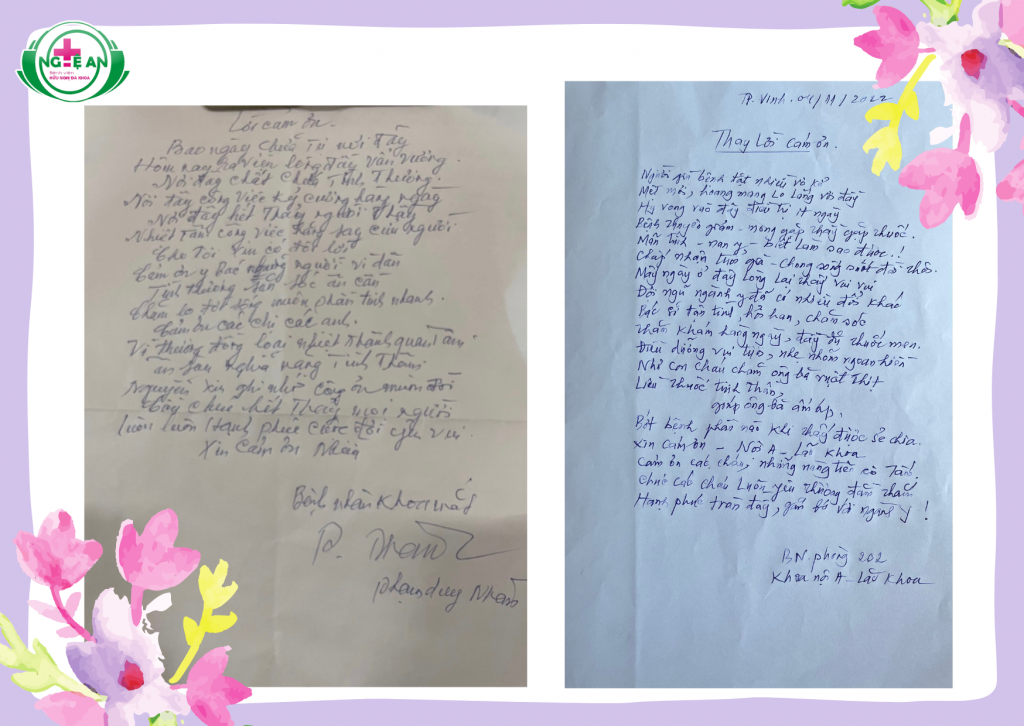 NGHỆ AN
Bệnh viện
HỮU NGHỊ ĐA KHOA
Lời cảm ơn.
Bao ngày chữa trị nơi đây
Hôm nay ra viện lòng đầy vấn vương.
Nơi đây chất chứa Tình Thương.
Nơi đây công việc kỷ cương hàng ngày
Nơi đây hết thảy người Thầy
Nhiệt tâm công việc hăng say cứu người
Cho Tôi xin có đôi lời
Cảm ơn y Bác những người vì dân
Tình thương săn sóc ân cần
Chăm lo đời sống muôn phần tinh nhanh.
Cảm ơn các chị các anh.
Vì thương đồng loại nhiệt thành quan tâm
ân sâu nghĩa nặng Tình Thâm
Nguyện xin ghi nhớ công ơn muôn đời
chúc hết Thảy mọi người
luôn luôn Hạnh phúc cuộc đời yên vui.
Xin Cảm ơn
Bệnh nhân Khoa mắt
Phạm duy Nham
TP. Vinh. 04/11/2022
Thay Lời Cám ơn.
Người già bệnh tật nhiều vô kể
Mệt mỏi, hoang mang Lo lắng vô đây
Hy vọng vào đây điều trị ít ngày
Bệnh thuyên giảm - mong gặp thầy gặp thuốc.
Mãn tính - nan y, - biết Làm sao được.!
Chấp nhận tuổi già - chung sống suốt đời thôi.
Mấy ngày ở đây lòng Lại thấy vui vui
Đội ngũ ngành y đã có nhiều đổi khác
Bác sĩ tận tình, hỏi han, chăm sóc
Thăm khám hàng ngày, đầy đủ thuốc men.
Điều dưỡng vui tươi, nhẹ nhõm ngoan hiền
Như con cháu chăm ông bà ruột thịt
Liều thuốc tinh thần,
giúp ông bà ấm áp.
Bớt bệnh phần nào khi thấy được sẻ chia.
Xin cám ơn - Nội A - Lão Khoa
Cám ơn các cháu, những nàng tiên cô Tấm
Chúc các cháu Luôn yêu thương đằm thắm
Hạnh phúc tràn đầy, gắn bó với ngành y!
BN. phòng 202
Khoa nội A - Lão Khoa